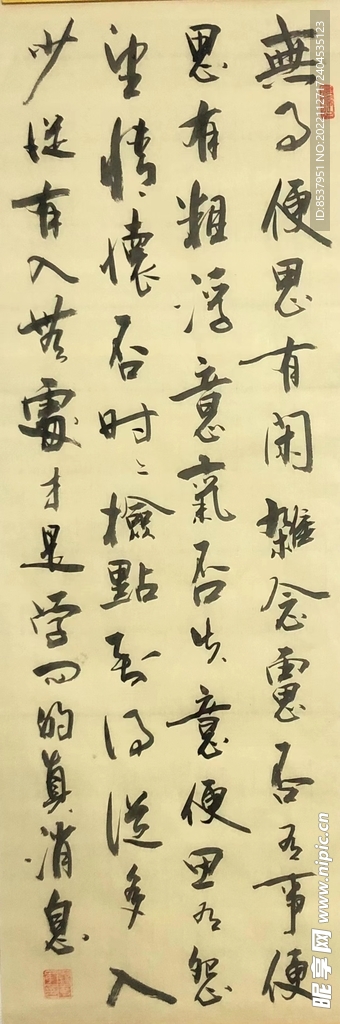 無事便思有闲雜念慮否有事便
思有粗浮意氣否失意便思有怨
望情懷否时时檢點到得從多入
少從有入無處才是学问的真消息
ID:8537951 NO:20221127172404535123
昵享网 www.nipic.cn